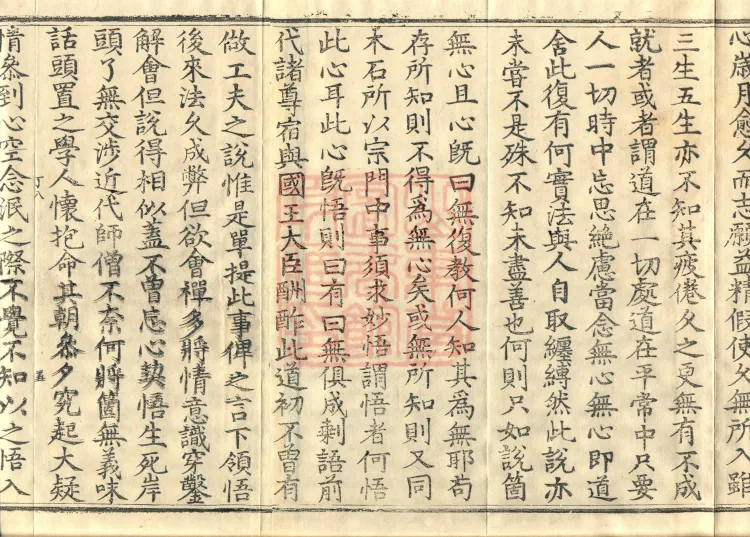 心歲月愈久而志願益精假使久無所入雖
三生五生亦不知其疲倦久之更無有不成
就者或者謂道在一切處道在平常中只要
人一切時中忘思絕慮當念無心無心即道
舍此復有何實法與人自取纏縛然此說亦
未嘗不是殊不知未盡善也何則只如說箇
無心且心既曰無復教何人知其為無耶苟
存所知則不得為無心矣或無所知則又同
木石所以宗門中事須求妙悟謂悟者何悟
此心耳此心既悟則曰有曰無俱成剩語前
代諸尊宿與國王大臣酬酢此道初不曾有
做工夫之說惟是單提此事俾之言下領悟
後來法久成弊但欲會禪多將情意識穿鑿
解會但說得相似蓋不曾忘心契悟生死岸
頭了無交涉近代師僧不奈何將箇無義味
話頭置之學人懷抱命其朝參夕究起大疑
情參到心空念泯之際不覺不知以之悟入